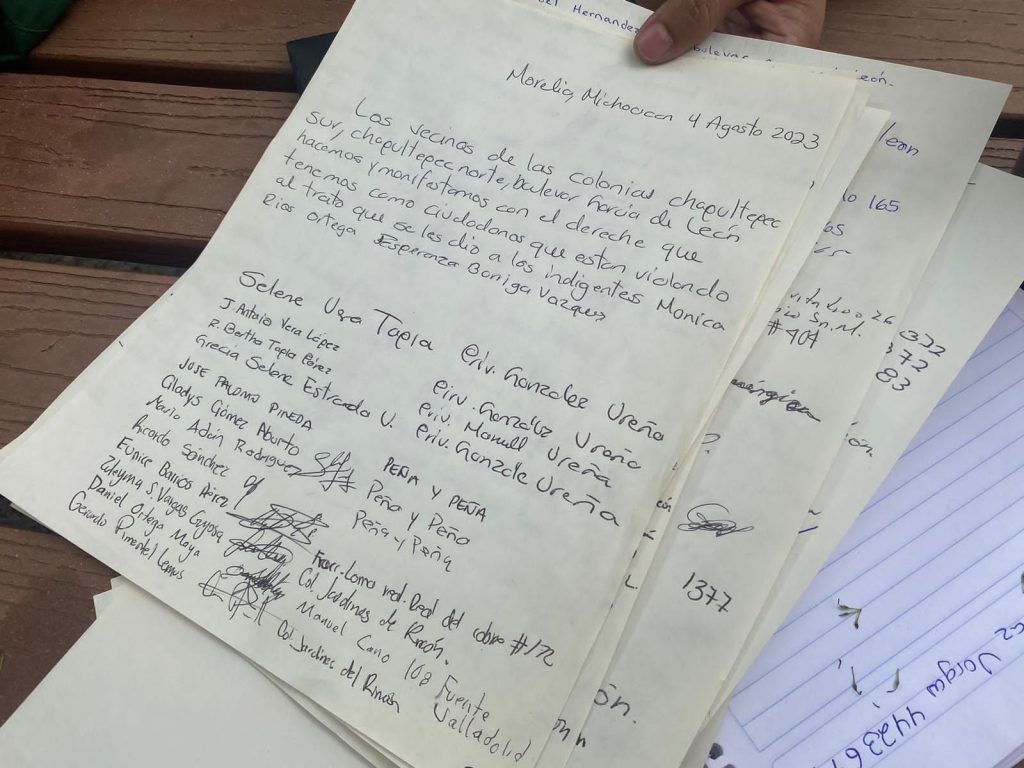 Morelia, Michoacan 4 Agosto 2023
Las vecinas de las colonias chapultepec
sur, chapultepec norte, bulevar García de León
hacemos y manifostamos con el dereche que
tenemos como ciudadanos que estan violando
al trato que se les dio a los indigentes Monica
Rios Ortega Esperanza Boniga Vazquez
Selene Vera Tapia Priv. Gonzalee Ureña
J. Antonio Vera López Pirv. Gonzalez Ureña
R. Bertha Tapia Pérez Priv. Manuell Ureña
Grecia Selene Estrada U. Priv. Gonzale Ureña
JOSE PALOMO PINEDA PEÑA Y PEÑA
Gladys Gómez Aburto Peña y Peña
Mario Adán Rodriguez Peña y Peña
Ricardo Sánchez
Eunice Barrios Pérez Fracc. Loma Real del cobre #172
Zleyma S. Vargas Col. Jardines de Rincón.
Daniel Ortega Maya Manuel Cano 108 Fuente Valladolid
Gerardo Pimentel Lemus Col. Jardines del Rincón
Hernandez
bulevar
León.
león
165
26
Sn. M.
#404
1372
372
83
1377
ón.
Vargas